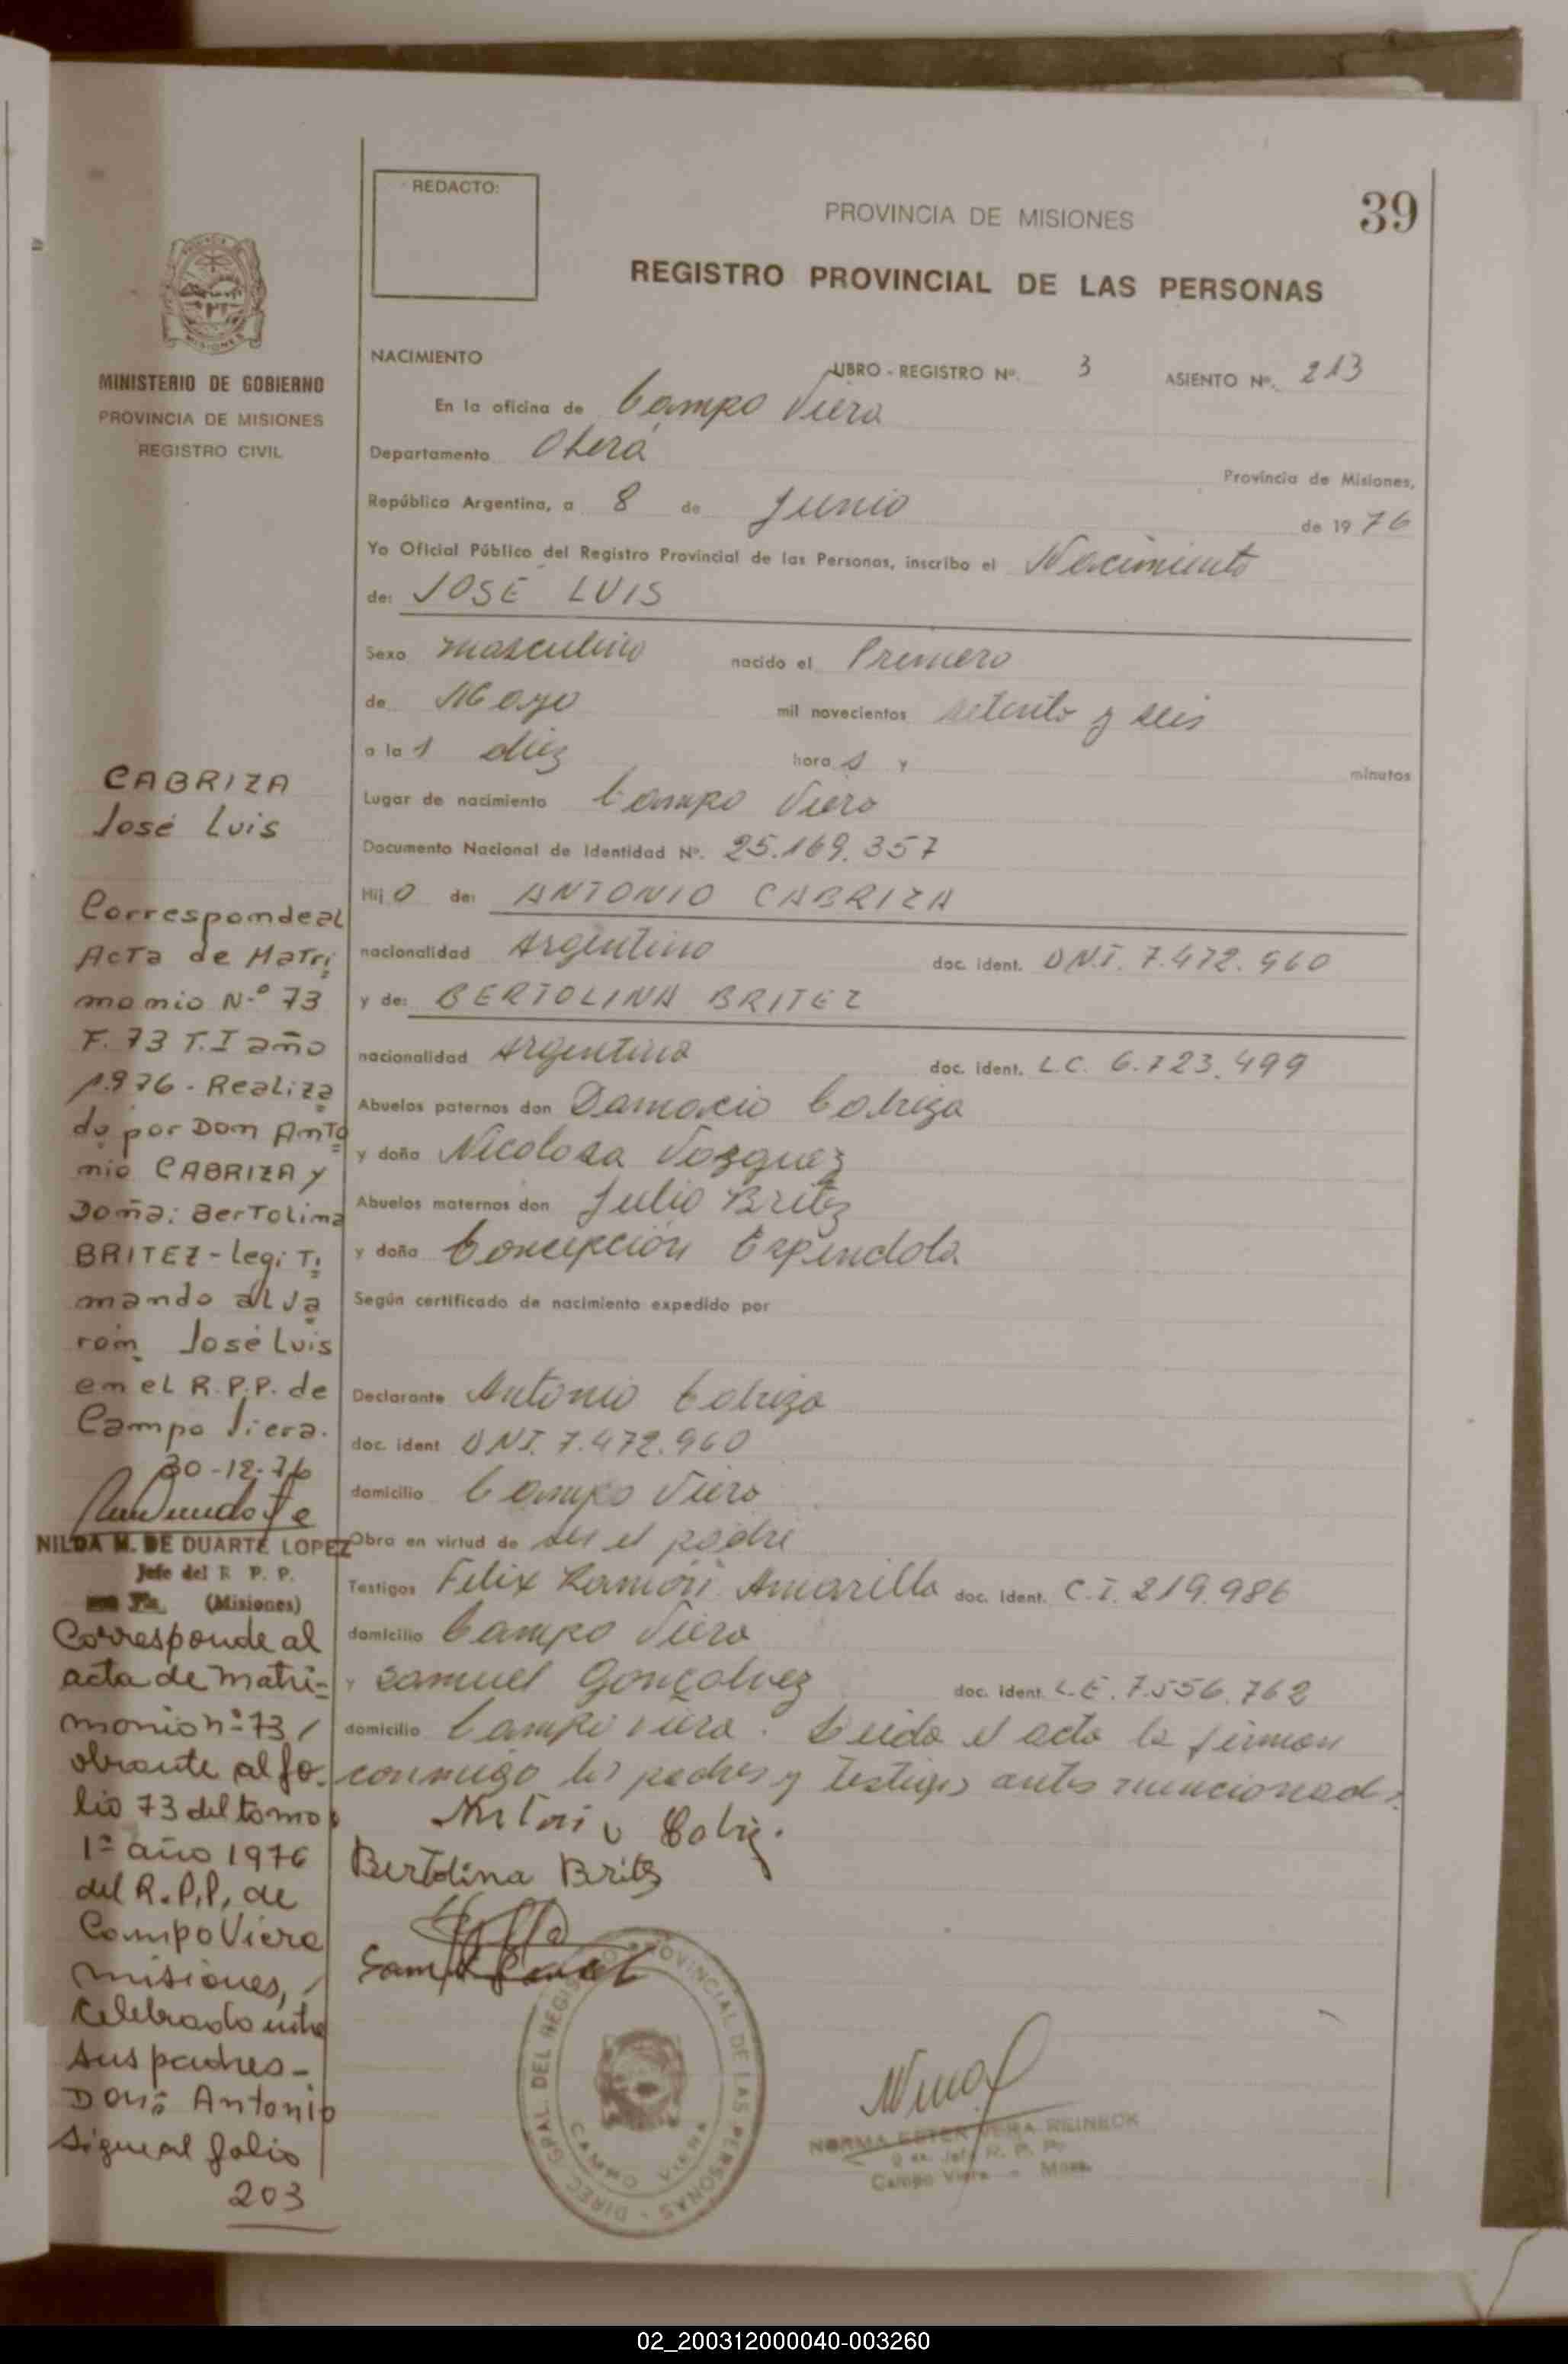 39
REDACTO:
PROVINCIA DE MISIONES
REGISTRO PROVINCIAL DE LAS PERSONAS
MINISTERIO DE GOBIERNO
PROVINCIA DE MISIONES
REGISTRO CIVIL
NACIMIENTO LIBRO - REGISTRO Nº. 3 ASIENTO Nº. 213
En la oficina de Campo Viera
Departamento Oberá Provincia de Misiones,
República Argentina, a 8 de Junio de 1976
Yo Oficial Público del Registro Provincial de las Personas, inscribo el Nacimiento
de: JOSÉ LUIS
Sexo masculino nacido el Primero
de Mayo mil novecientos setenta y seis
a las diez horas y minutos
Lugar de nacimiento Campo Viera
Documento Nacional de Identidad Nº. 25.169.357
Hijo de: ANTONIO CABRIZA
nacionalidad Argentino doc. ident. DN.I. 7.472.960
y de: BERTOLINA BRITEZ
nacionalidad Argentina doc. ident. L.C. 6.723.499
Abuelos paternos don Damacio Cabriza
y doña Nicolasa Vazquez
Abuelos maternos don Julio Britez
y doña Concepción Espindola
Según certificado de nacimiento expedido por
Declarante Antonio Cabriza
doc. ident DNI. 7.472.960
domicilio Campo Viera
Obra en virtud de ser el padre
Testigos Felix Ramón Amarilla doc. ident. C.I. 219.986
domicilio Campo Viera
y Samuel Gonçalvez doc. ident. L.E. 7.556.762
domicilio Campo Viera. Leida el acta la firman
conmigo los padres y testigos antes mencionados.
Bertolina Britez
DIREC. GRAL. DEL REGISTRO PROVINCIAL DE LAS PERSONAS -
CAMPO VIERA
NORMA ESTER VERA REINECK
Jefe R. P. P.
Campo Viera - Mnes.
CABRIZA
José Luis
Corresponde al
Acta de Matri
monio N.º 73
F. 73 T.I año
1.976 - Realiza
do por Don Anto
nio CABRIZA y
Doña: Bertolina
BRITEZ - legiti
mando al va
ron José Luis
en el R.P.P. de
Campo Viera.
30-12-76
NILDA M. DE DUARTE LOPEZ
Jefe del R. P. P.
(Misiones)
Corresponde al
acta de matri-
monio nº 73
obrante al fo-
lio 73 del tomo
1º año 1976
del R.P.P. de
Campo Viera
misiones,
celebrado entre
sus padres -
Don: Antonio
sigue al folio
203
02_200312000040-003260